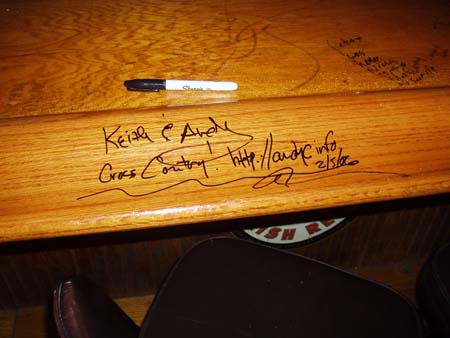 Sharpie
Keith & Andy
Cross Country! http://andyc.info
2/5/06
ISH RE